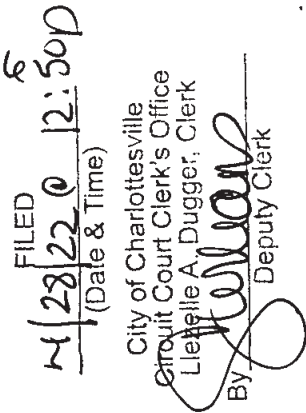 FILED
4/28/22 @ 12:50p
(Date & Time)
City of Charlottesville
Circuit Court Clerk's Office
Llezelle A. Dugger, Clerk
By
Deputy Clerk